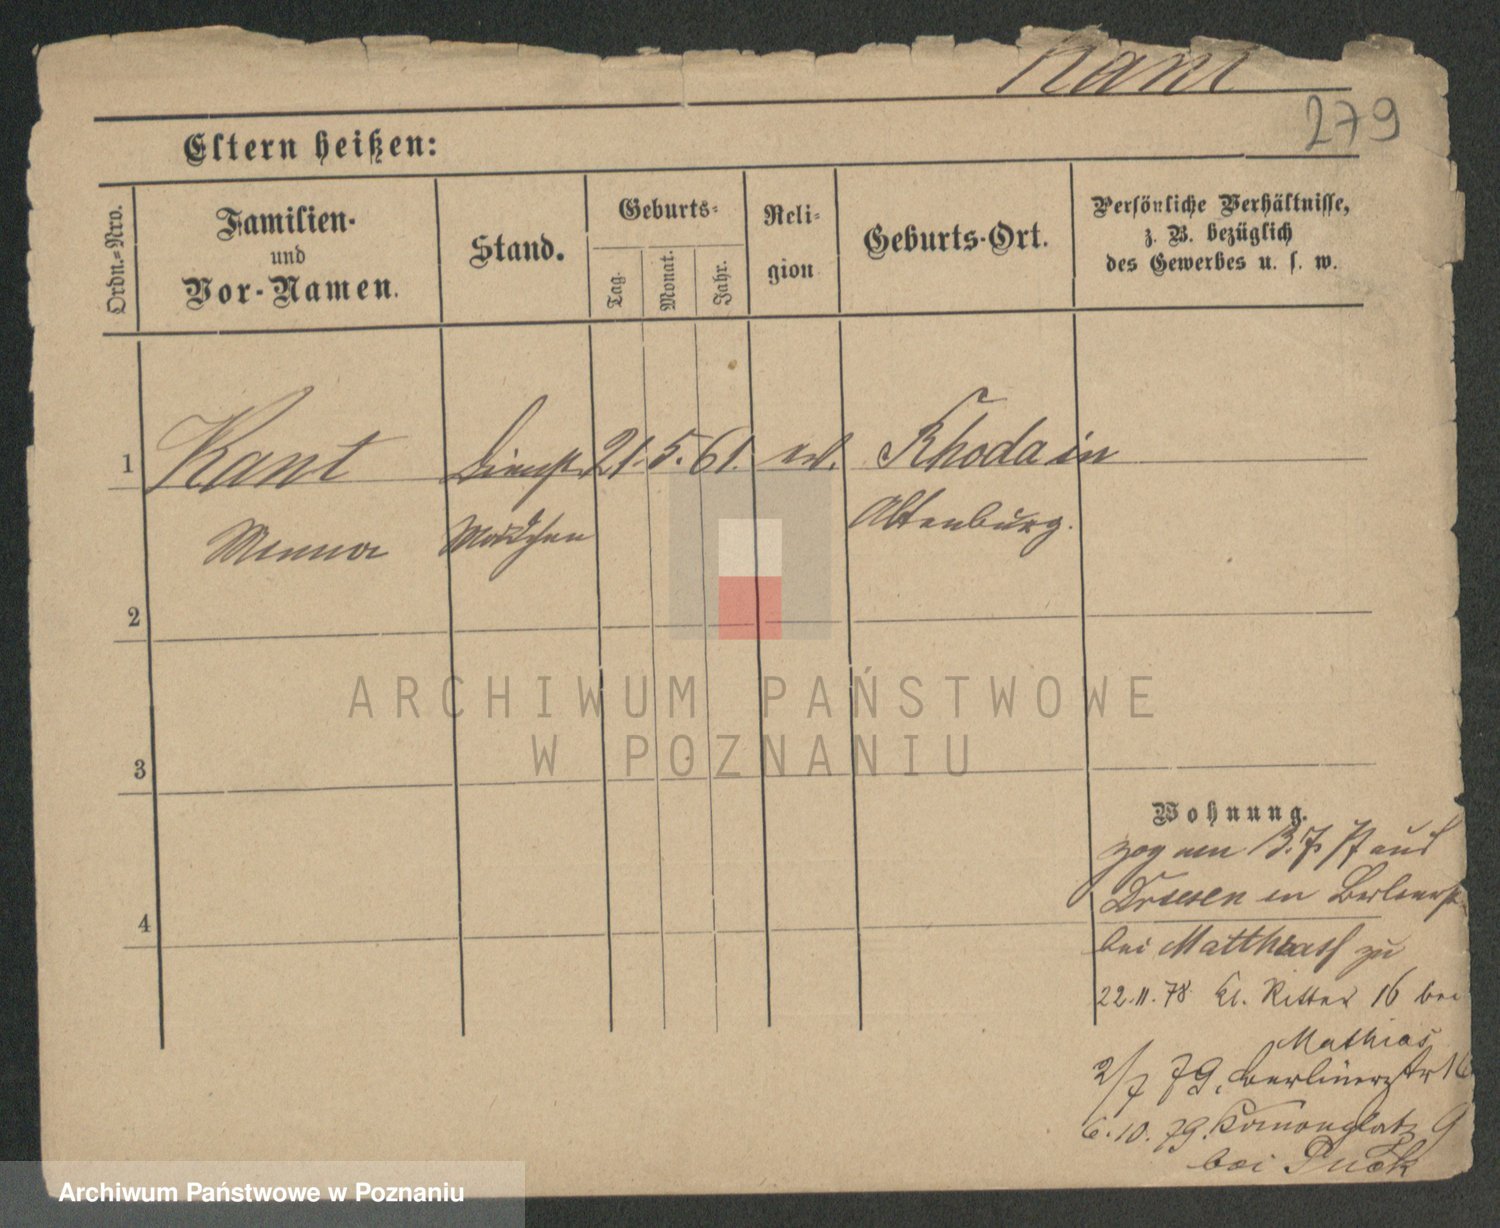 Kant
279
Eltern heißen:
Ordn.-Nro.
Familien-
und
Vor-Namen.
Stand.
Geburts-
Tag.
Monat.
Jahr.
Reli-
gion
Geburts-Ort.
Persönliche Verhältnisse,
z. B. bezüglich
des Gewerbes u. s. w.
1 Kant Dienst 21. 5. 61. ev. Rhoda in
Minna Mädchen Altenburg.
2
3
4
Wohnung.
zog am 3. 7. 77 aus
Driesen in Berlinerst
bei Matthias zu
22.11.78 Kl. Ritter 16 bei
Mathias
2/7 79. Berlinerstr 16
6.10.79. Kanonenplatz 9
bei
ARCHIWUM PAŃSTWOWE
W POZNANIU
Archiwum Państwowe w Poznaniu